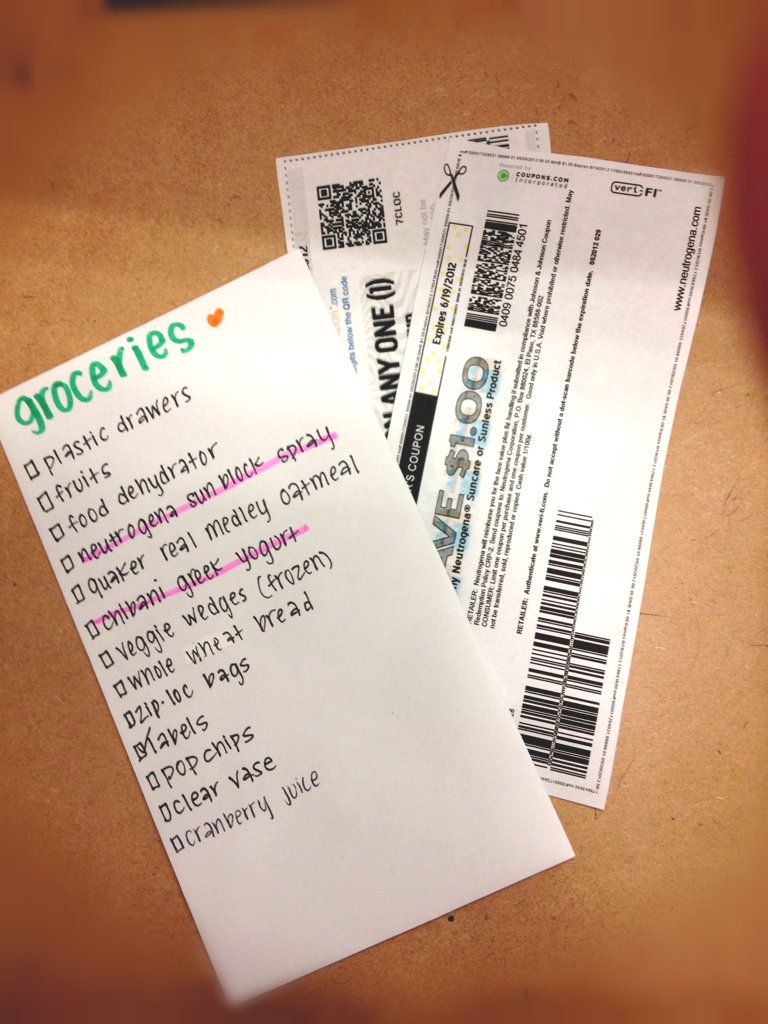 groceries
plastic drawers
fruits
food dehydrator
neutrogena sun block spray
quaker real medley oatmeal
chibani greek yogurt
veggie wedges (frozen)
whole wheat bread
zip-loc bags
labels
pop chips
clear vase
cranberry juice
7CLOC
May not be
below the QR code
ANY ONE (1)
Powered by
COUPONS.COM
Incorporated
veri-fi™
www.neutrogena.com
Expires 6/19/2012
0409 0075 0484 4501
COUPON
AVE $1.00
Neutrogena® Suncare or Sunless Product
RETAILER: Neutrogena will reimburse you for the face value plus 8¢ handling if submitted in compliance with Johnson & Johnson Coupon
Redemption Policy CRP-2. Send coupons to: Neutrogena Corporation, P.O. Box 880024, El Paso, TX 88588-002.
CONSUMER: Limit one coupon per purchase and one coupon per customer. Good only in U.S.A. Void where prohibited or otherwise restricted. May
not be transferred, sold, reproduced or copied. Cash value 1/100¢.
RETAILER: Authenticate at www.veri-fi.com. Do not accept without a dot-scan barcode below the expiration date.